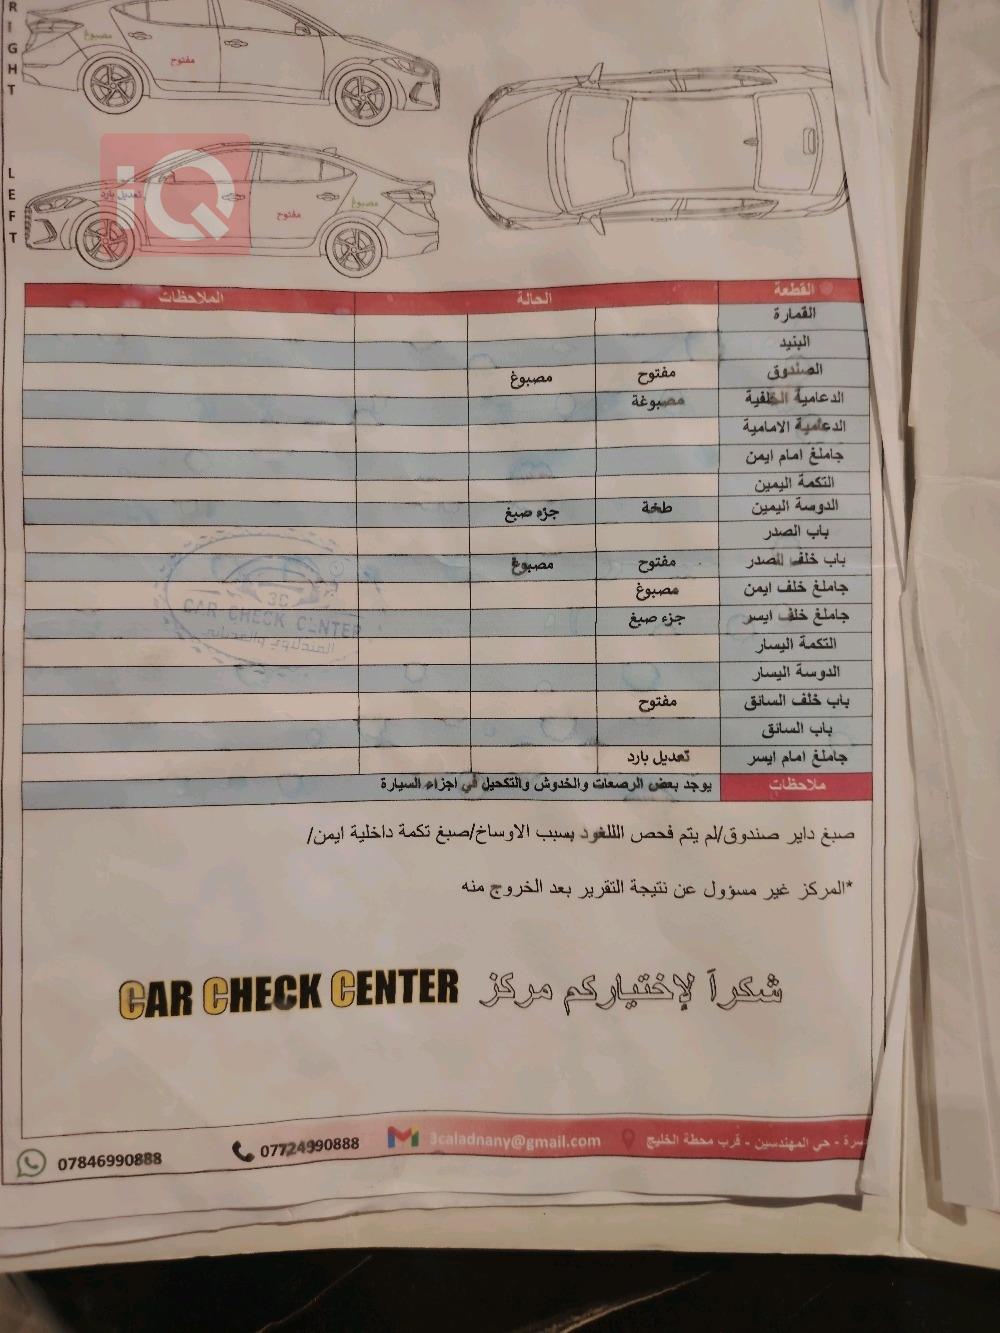 RIGHT
مصبوغ
مفتوح
LEFT
IQ
تعديل بارد
مفتوح
مصبوغ
القطعة الحالة الملاحظات
القمارة
البنيد
الصندوق مفتوح مصبوغ
الدعامية الخلفية مصبوغة
الدعامية الامامية
جاملغ امام ايمن
التكمة اليمين
الدوسة اليمين طخة جزء صبغ
باب الصدر
باب خلف الصدر مفتوح مصبوغ
جاملغ خلف ايمن مصبوغ
جاملغ خلف ايسر جزء صبغ
التكمة اليسار
الدوسة اليسار
باب خلف السائق مفتوح
باب السائق
جاملغ امام ايسر تعديل بارد
ملاحظات يوجد بعض الرصعات والخدوش والتكحيل في اجزاء السيارة
3C
CAR CHECK CENTER
صبغ داير صندوق/لم يتم فحص اللغود بسبب الاوساخ/صبغ تكمة داخلية ايمن/
*المركز غير مسؤول عن نتيجة التقرير بعد الخروج منه
شكراً لإختياركم مركز CAR CHECK CENTER
حي المهندسين - قرب محطة الخليج
3caladnany@gmail.com
07724990888
07846990888